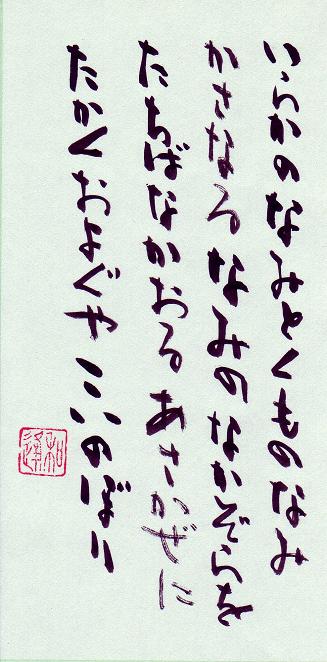 いらかのなみとくものなみ
かさなるなみのなかぞらを
たちばなかおるあさかぜに
たかくおよぐやこいのぼり